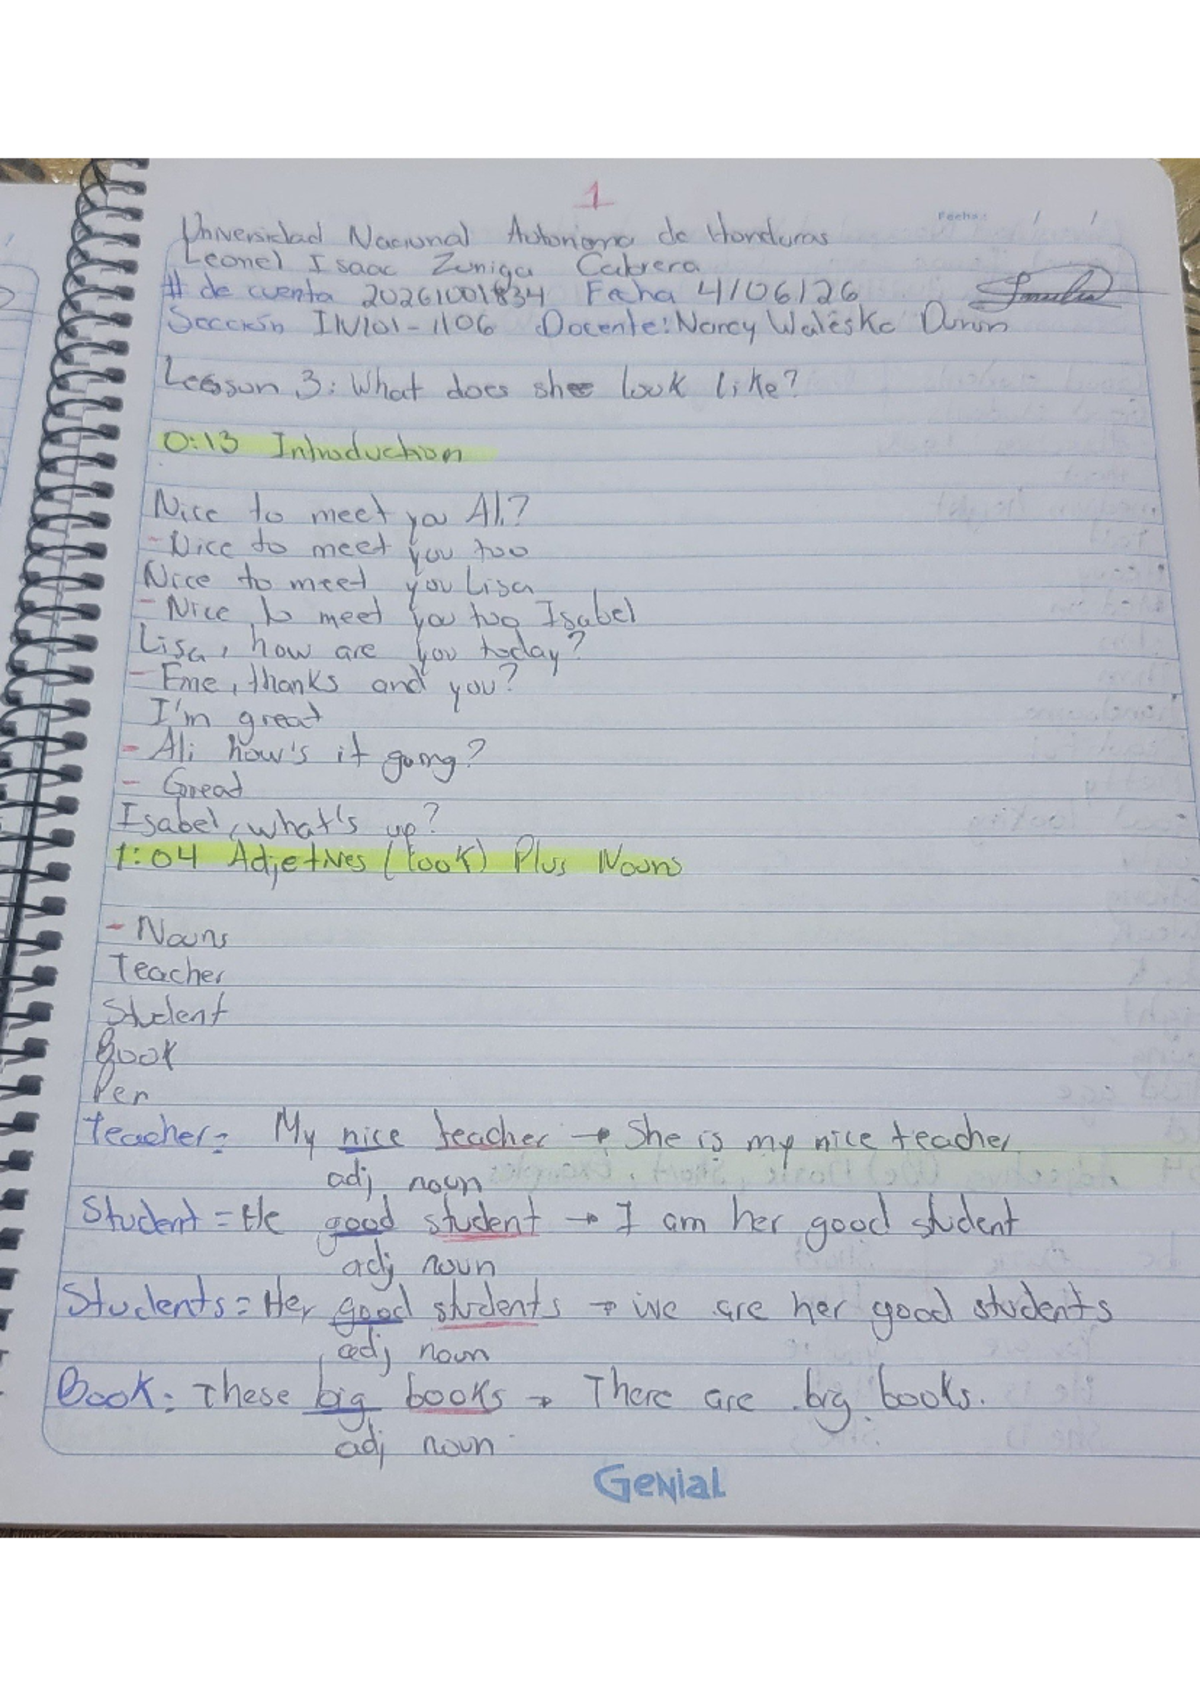 1
Fecha: / /
Universidad Nacional Autonoma de Honduras
Leonel Isaac Zuniga Cabrera
# de cuenta 20261001834 Fecha 4/06/26
Sección IN101-1106 Docente: Nancy Waleska Duron
Lesson 3: What does she look like?
0:13 Introduction
Nice to meet you Ali?
- Nice to meet you too
Nice to meet you Lisa
- Nice to meet you too Isabel
Lisa, how are you today?
- Fine, thanks and you?
I'm great
- Ali how's it going?
- Great
Isabel, what's up?
1:04 Adjetives (look) Plus Nouns
- Nouns
Teacher
Student
Book
Pen
teacher= My nice teacher → She is my nice teacher
adj noun
Student = He good student → I am her good student
adj noun
Students = Her good students → we are her good students
adj noun
Book: These big books → There are big books.
adj noun
Genial